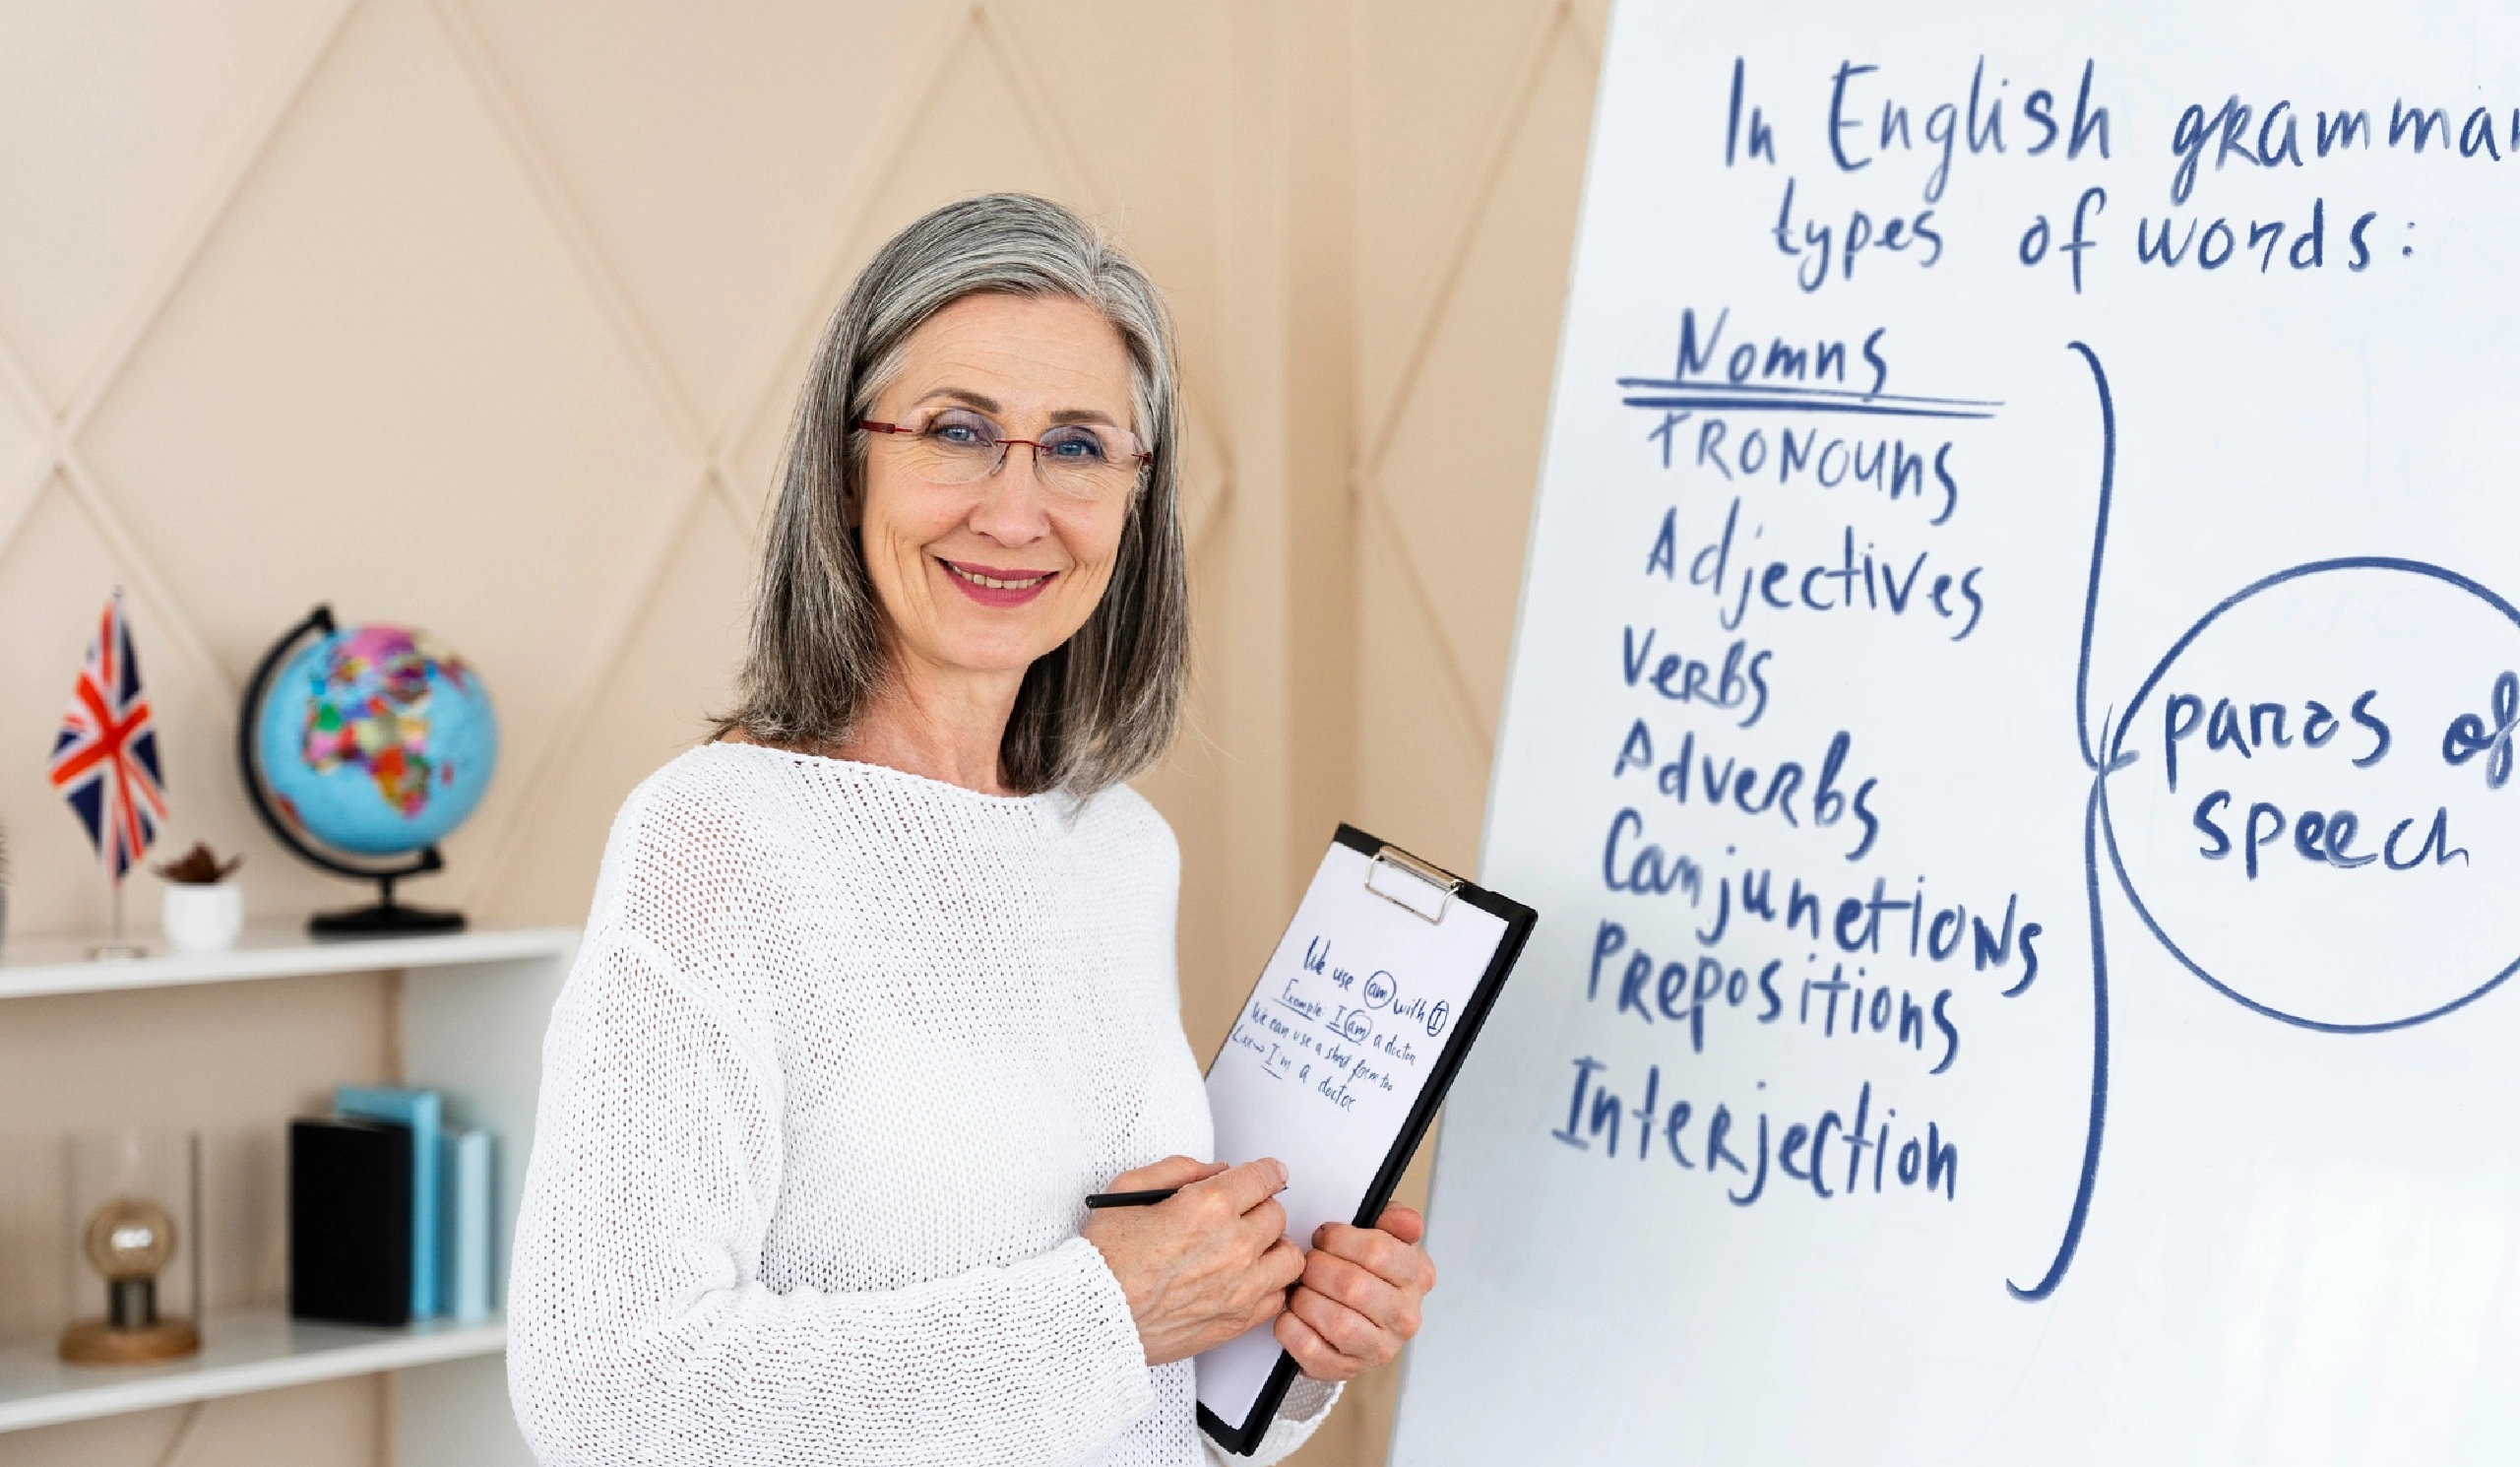 In English grammar
types of words:
Nomns
PRONOUns
Adjectives
Verbs
Adverbs
Canjunctions
Prepositions
Interjection
parts of
speech
We use am with I
Example I am a doctor
We can use a short form too
I'm a doctor